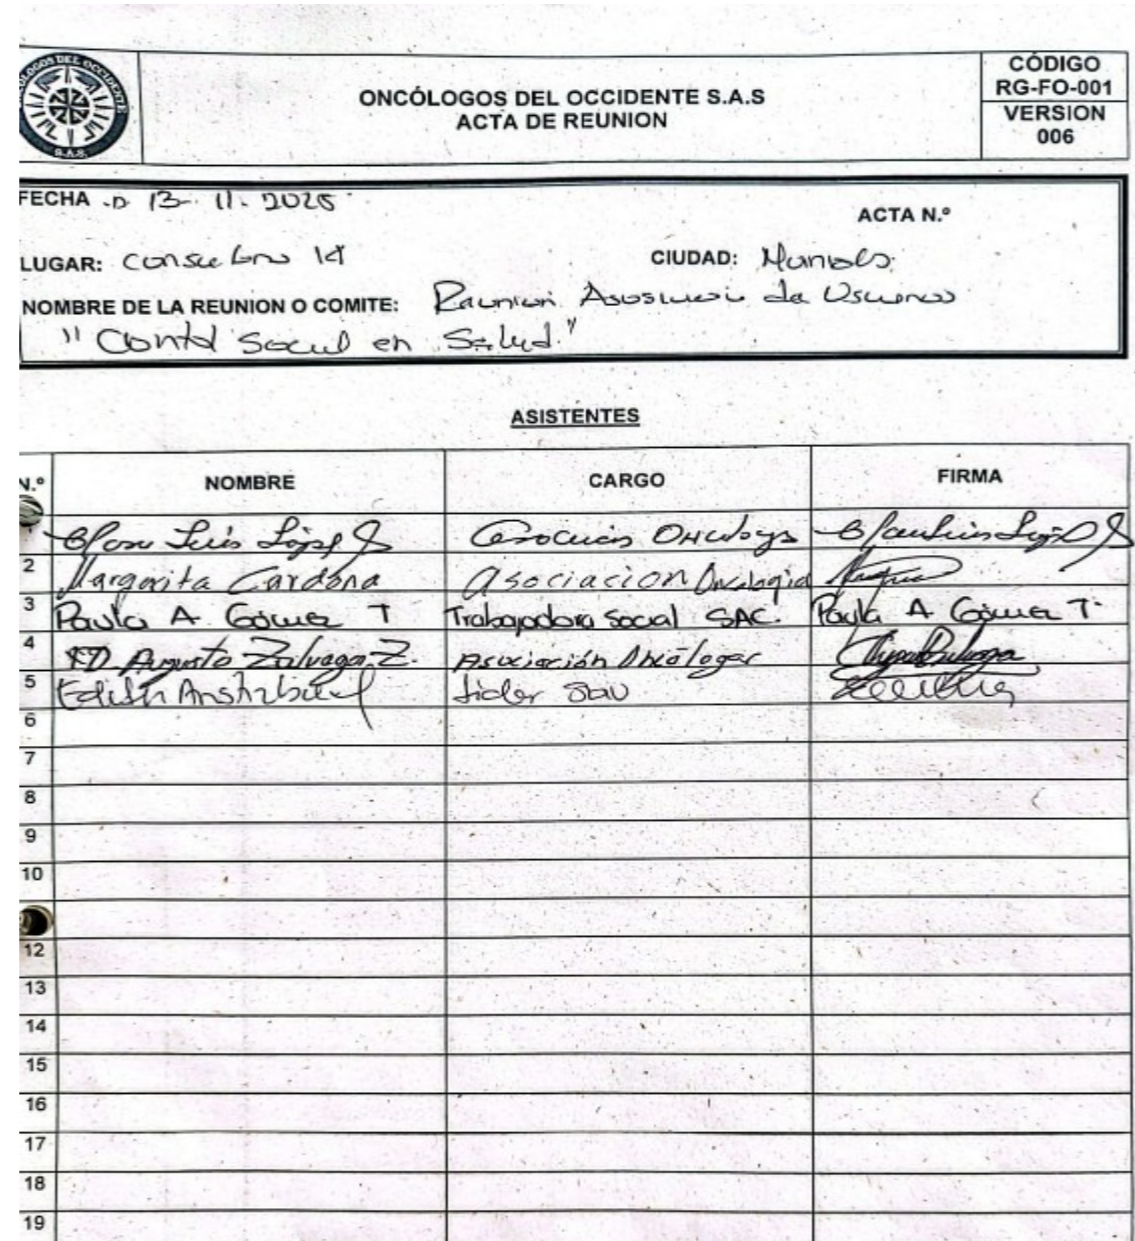 ONCÓLOGOS DEL OCCIDENTE S.A.S
ACTA DE REUNION
CÓDIGO
RG-FO-001
VERSION
006
FECHA 13-11-2025
ACTA N.º
LUGAR: 14
CIUDAD: Manizales
NOMBRE DE LA REUNION O COMITE: Reunion de Usuarios
"Social en Salud"
ASISTENTES
N.º NOMBRE CARGO FIRMA
Luis López
2 Margarita Cardona Asociacion Oncologia
3 Paula A Gómez T Trabajadora Social SAC. Paula A Gómez T
4 Augusto Zuluaga Z. Asociación Oncólogos
5 Edith lider
6
7
8
9
10
12
13
14
15
16
17
18
19